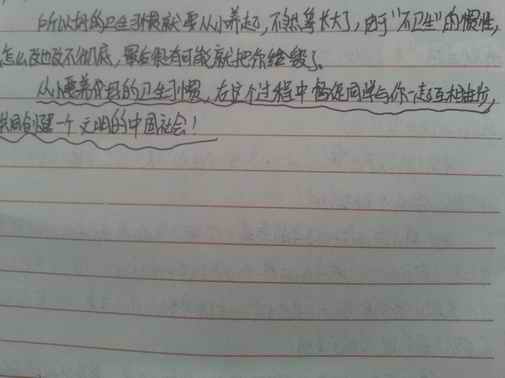 所以好的卫生习惯就要从小养起，不然等长大了，由于“不卫生”的惯性，
怎么改也改不彻底，最后很有可能就把你给毁了。
从小要养你好的卫生习惯，在这个过程中督促同学与你一起互相进步，
共同创建一个文明的中国社会！